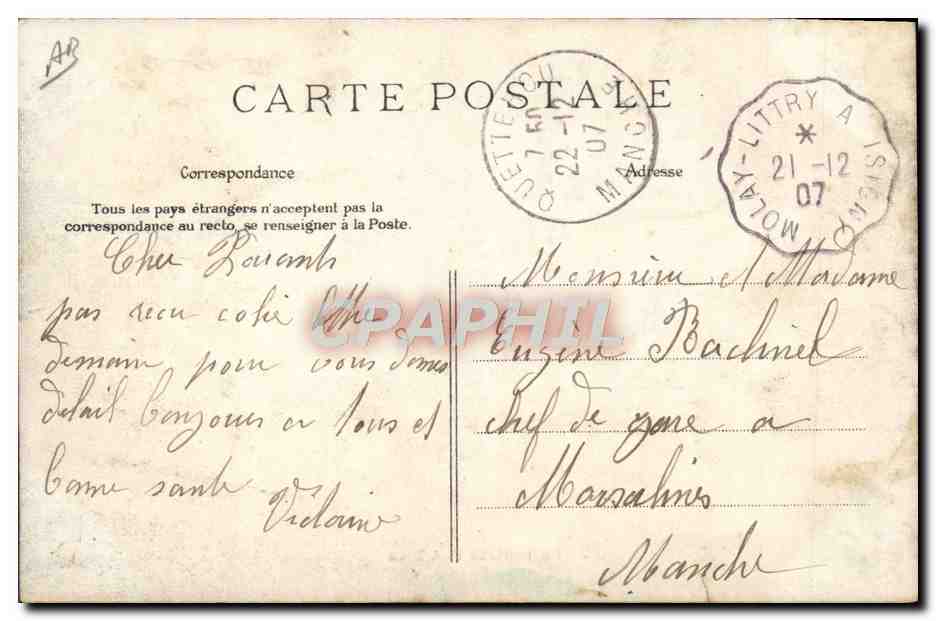 AB
CARTE POSTALE
QUETTEHOU
7 50
22 -12
07
MANCHE
MOLAY-LITTRY A ISIGNY
*
21 -12
07
Correspondance
Adresse
Tous les pays étrangers n'acceptent pas la
correspondance au recto, se renseigner à la Poste.
Cher Parents
pas recu colie
demain pour vous
detail bonjour a tous et
bonne sante
CPAPHIL
Monsieur et Madame
Eugène Bachinel
chef de gare a
Morsalines
Manche